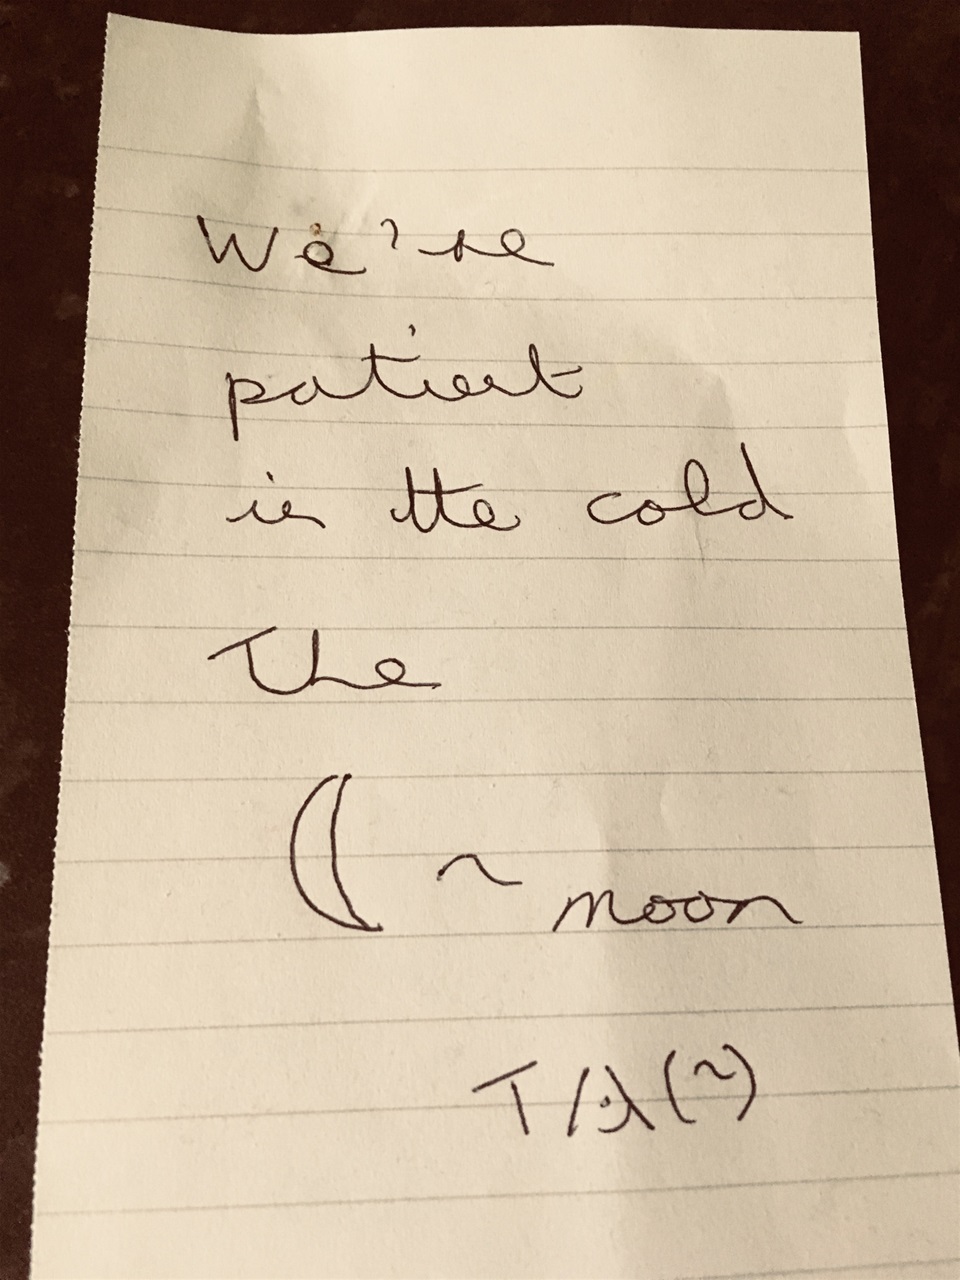 We're
patient
in the cold
The
~ moon
T/λ(~)